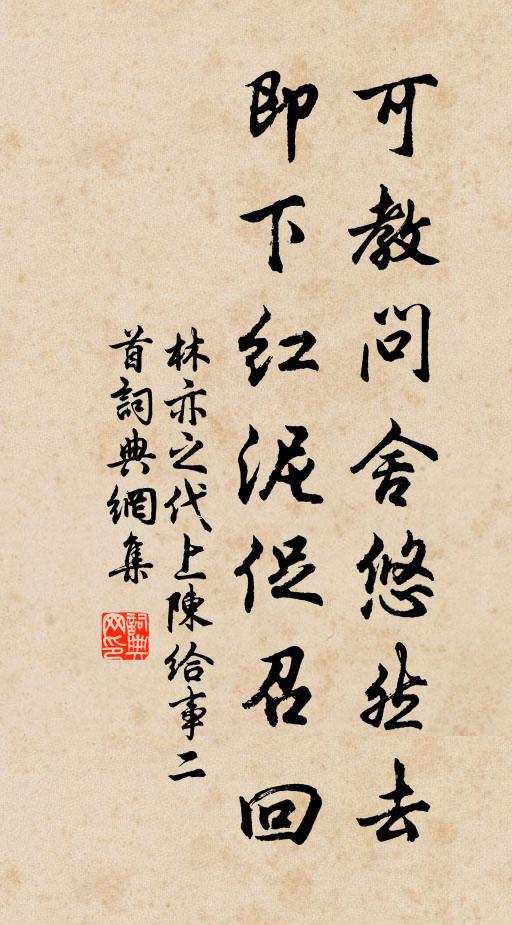 可教問舍悠然去
即下红泥促召回
林亦之代上陳给事二
首詞典網集
詞典
网印